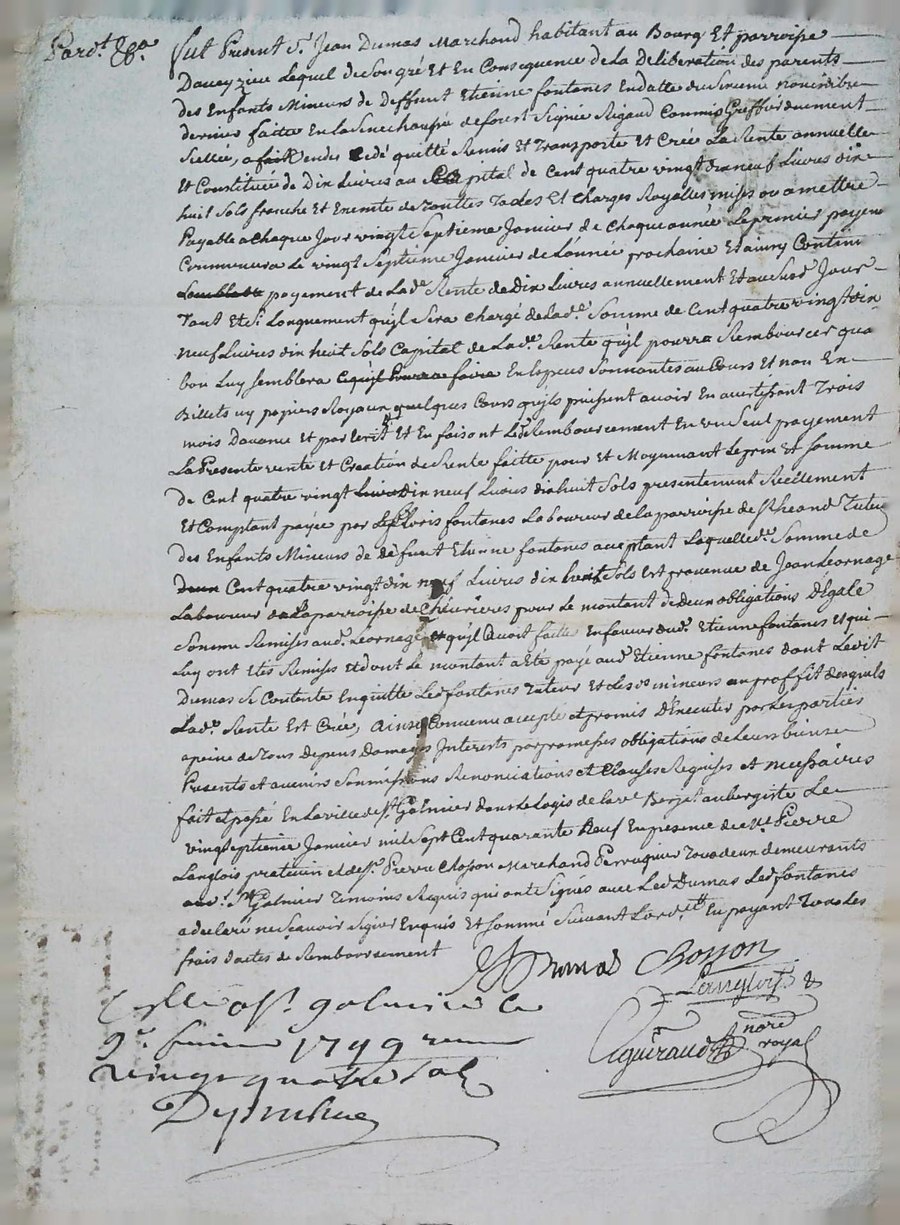 Pard.t
fut Present S.r Jean Dumas Marchand habitant au Bourg Et parroisse
Daveyzieu Lequel de Son gré Et En Consequence de la Deliberation des parents
des Enfants Mineurs de Deffunt Etienne fontanes En datte du novembre
dernier faitte En la Senechaussée de forest Signée Rigaud Commis Greffier
Scellée, a fait vendu cedé quitté Remis Et Transporte Et Créé La Rente annuelle
Et Constituée de Dix Livres au Capital de Cent quatre vingt dix neuf Livres dix
huit Sols franche Et Exempte de Touttes Tades Et Charges Royalles mises ou a mettre
Payable a Chaque Jour vingt Septieme Janvier de Chaque année Le premier payem
Commencera Le vingt Septieme Janvier de L'année prochaine Et ainsy Continu
Semblable payement de Lad.e Rente de Dix Livres annuellement Et au Susd. Jour
Tant Et Si Longuement qu'il Sera Chargé de Lad.e Somme de Cent quatre vingt dix
neuf Livres dix huit Sols Capital de Lad.e Rente qu'il pourra Rembourcer qua
bon Luy Semblera ce qu'il Pourra faire En Especes Sonnantes au Cours Et non En
Billets ny papiers Royaux quelques Cours qu'ils puissent avoir En avertissant Trois
mois Davance Et par Ecrit Et En faisant Led. Rembourcement En un Seul payement
La Presente vente Et Creation de Rente faitte pour Et Moyennant Le prix Et Somme
de Cent quatre vingt Livres dix neuf Livres dix huit Sols presentement Reellement
Et Comptant payée par Floris fontanes Laboureur de la parroisse de St heand Tuteur
des Enfants Mineurs de défunt Etienne fontanes acceptant Laquelle d. Somme de
Deux Cent quatre vingt dix neuf Livres dix huit Sols Est provenue de Jean Leornage
Laboureur de La parroisse de Chevrieres pour le montant de deux obligations D'Egale
Somme Remises aud. Leornage Et qu'il avoit faitte En faveur dud. Etienne fontanes Et qui
Luy ont Etés Remises Et dont le montant a Eté payé aud. Etienne fontanes dont Ledit
Dumas Se Contente En quitte Led. fontanes Tuteur Et Lesd.s mineurs au proffit desquels
Lad.e Rente Est Créé, Ainsy Convenu accepté et promis D'Executer par Les parties
a peine de Tous Depens Domages Interests par promesses obligations de Leurs biens
Presents et avenirs Soumissions Renonciations et Clauses Requises et necessaires
fait et passé En La ville de St Galmier dans Le Logis de La ve Berjet aubergiste Le
vingt Septieme Janvier mil Sept Cent quarante Neuf En presence de Me Pierre
Langlois praticien et de Sr. Pierre Chosson Marchand Perruquier Tous deux demeurants
aud. St Galmier Temoins Requis qui ont Signés avec Led. Dumas Led. fontanes
a declaré ne Sçavoir Signer Enquis Et Sommé Suivant L'ord.ce En payant Tous Les
frais d'actes de Remboursement
Dumas Chosson
Langlois
Eguiraud
notre
royal
Scellé a St galmier le
1749
vingt quatre Sols